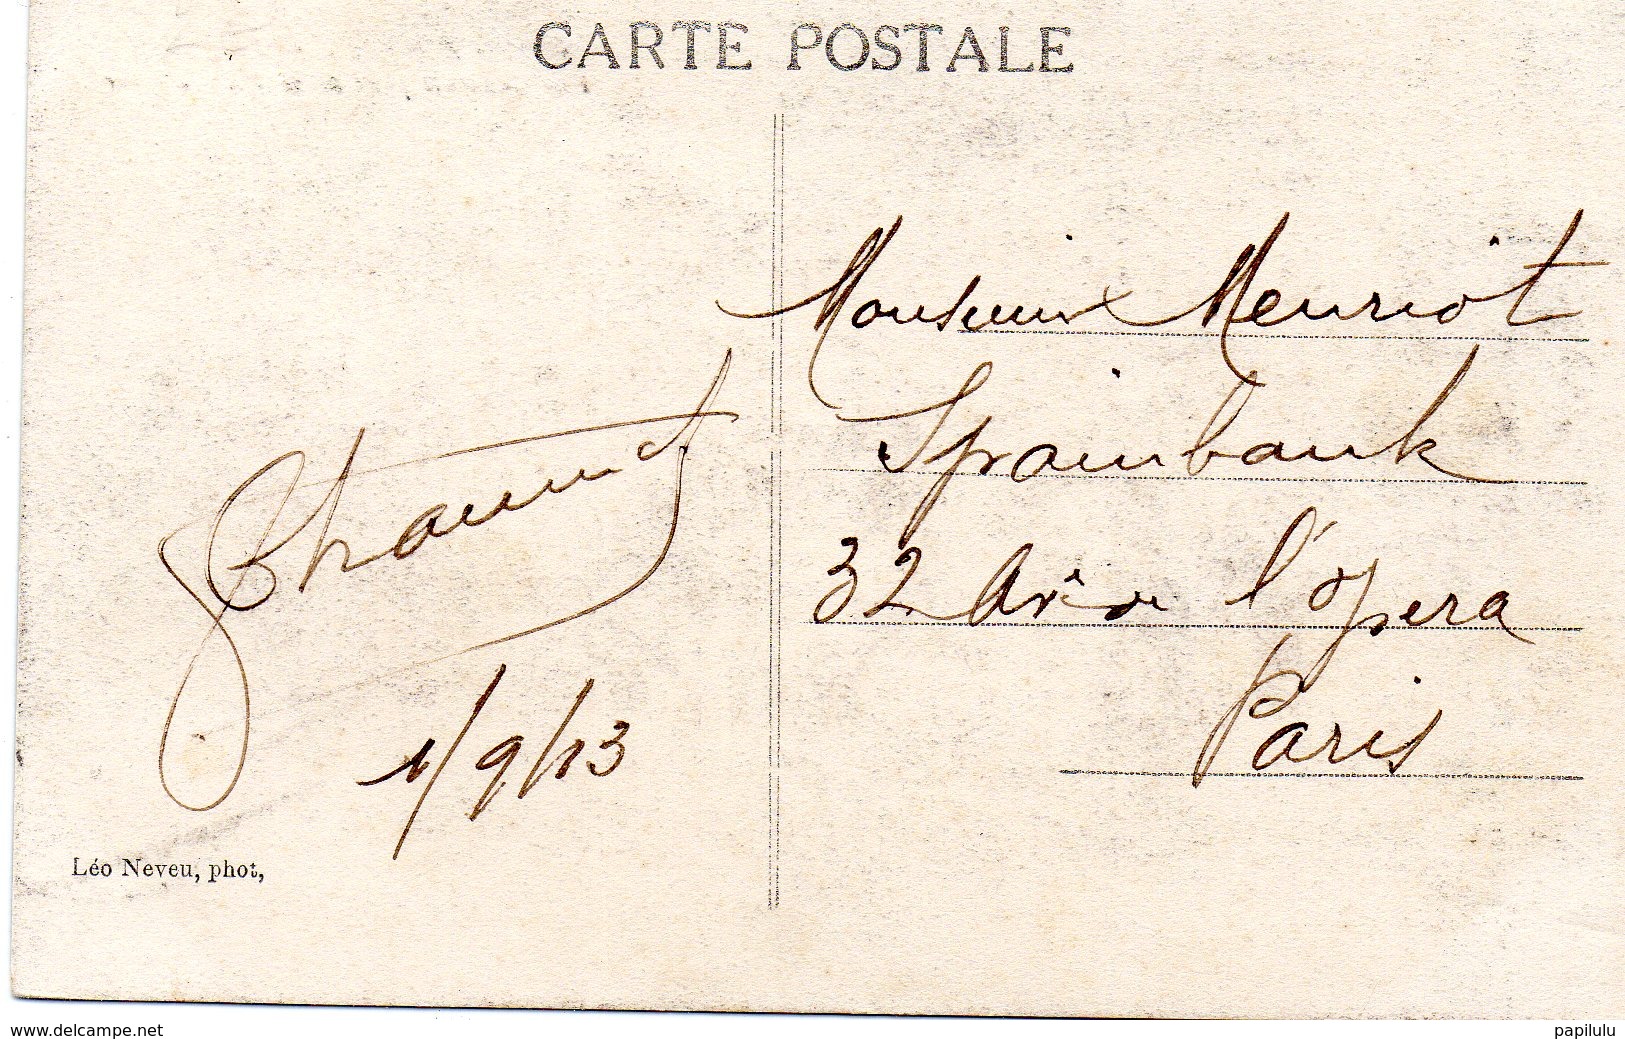 CARTE POSTALE
Monsieur Meuriot
Spainbank
32 Ave de l'opera
Paris
1/9/13
Léo Neveu, phot,
www.delcampe.net
papilulu